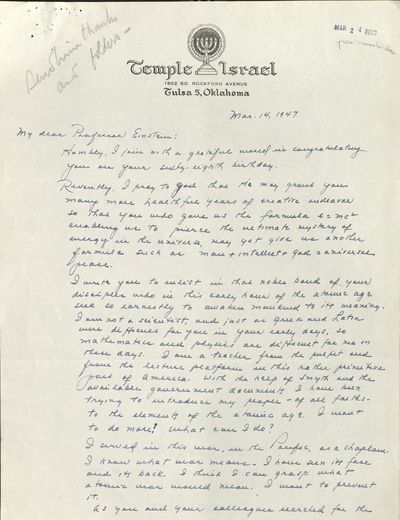 Send him thanks
and folders —
MAR 24 RECD
Temple Israel
1602 SO. ROCKFORD AVENUE
Tulsa 5, Oklahoma
Mar. 14, 1947
My dear Professor Einstein:
Humbly, I join with a grateful world in congratulating
you on your sixty-eighth birthday.
Reverently, I pray to God that He may grant you
many more healthful years of creative endeavor
so that you who gave us the formula e = mc²
enabling us to pierce the ultimate mystery of
energy in the universe, may yet give us another
formula such as man + intellect + God = universal
peace.
I write you to enlist in that noble band of your
disciples who in this early hour of the atomic age
seek so earnestly to awaken mankind to its meaning.
I am not a scientist, and just as Greek and Latin
were difficult for you in your early days, so
mathematics and physics are difficult for me in
these days. I am a teacher from the pulpit and
from the lecture platform in this rather primitive
part of America. With the help of Smyth and the
available government documents I have been
trying to introduce my people - of all faiths -
to the elements of the atomic age. I want
to do more! What can I do?
I served in this war, in the Pacific, as a chaplain.
I know what war means. I have seen its face
and its back. I think I can grasp what
atomic war would mean. I want to prevent
it.
As you and your colleagues searched for the